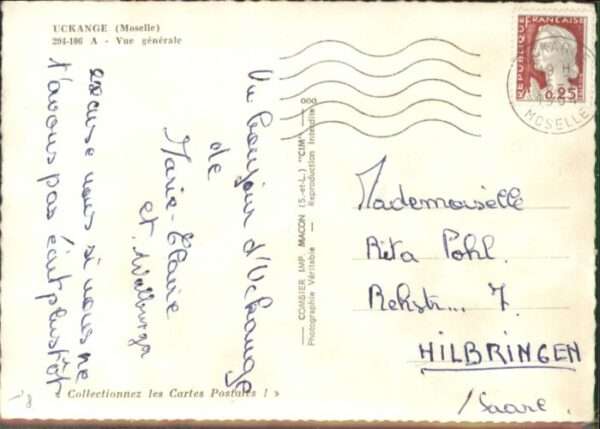 UCKANGE (Moselle)
294-106 A - Vue générale
Un bonjour d'Uckange
de
Marie-Claire
et Walburga
excuse nous si nous ne
t'avons pas écrit plustôt
« Collectionnez les Cartes Postales ! »
COMBIER IMP. MACON (S.-et-L.) "CIM"
Photographie Véritable - Reproduction Interdite
REPUBLIQUE FRANÇAISE
0,25
MOSELLE
Mademoiselle
Rita Pohl.
Rehstr... 7.
HILBRINGEN
/Saare.